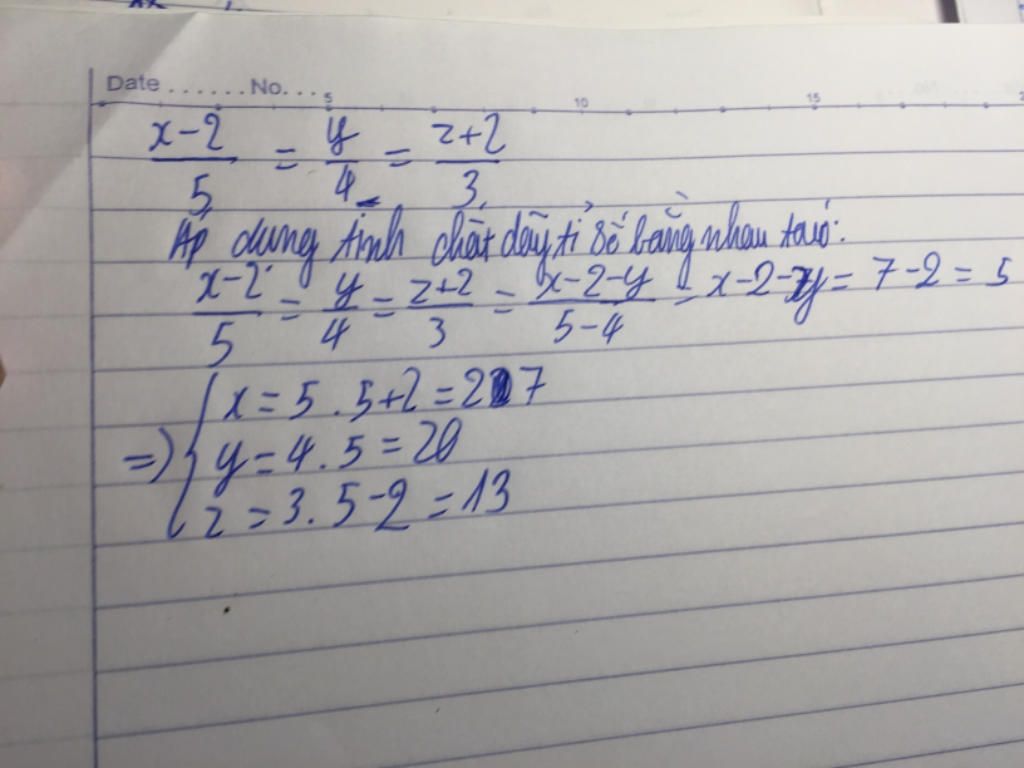 Date ....... No. ...
5 10 15
x-2/5 = y/4 = z+2/3
Áp dụng tính chất dãy tỉ số bằng nhau ta có:
x-2/5 = y/4 = z+2/3 = x-2-y/5-4 = x-2-y = 7-2 = 5
=> { x = 5 . 5+2 = 27
y = 4 . 5 = 20
z = 3 . 5-2 = 13